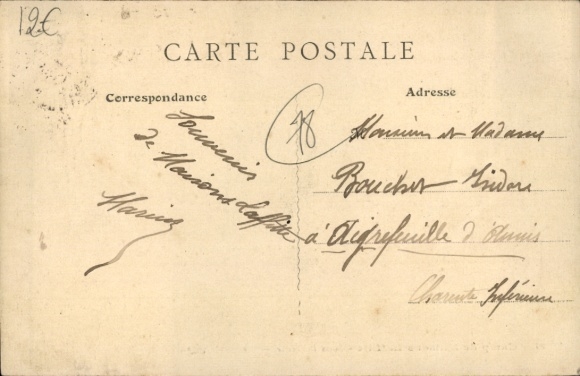 12€
CARTE POSTALE
Correspondance
Adresse
78
Souvenir
de Maisons Laffitte
Monsieur et Madame
Bouchet Isidore
à Aigrefeuille d'Aunis
Charente Inférieure